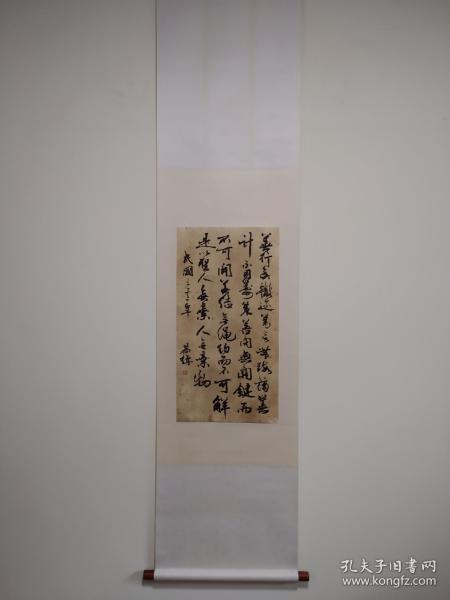 善行無轍迹善言無瑕謫善
計不用籌策善閉無關鍵而
不可開善結無繩約而不可解
是以聖人無棄人無棄物
民國三年
孔夫子旧书网
www.kongfz.com